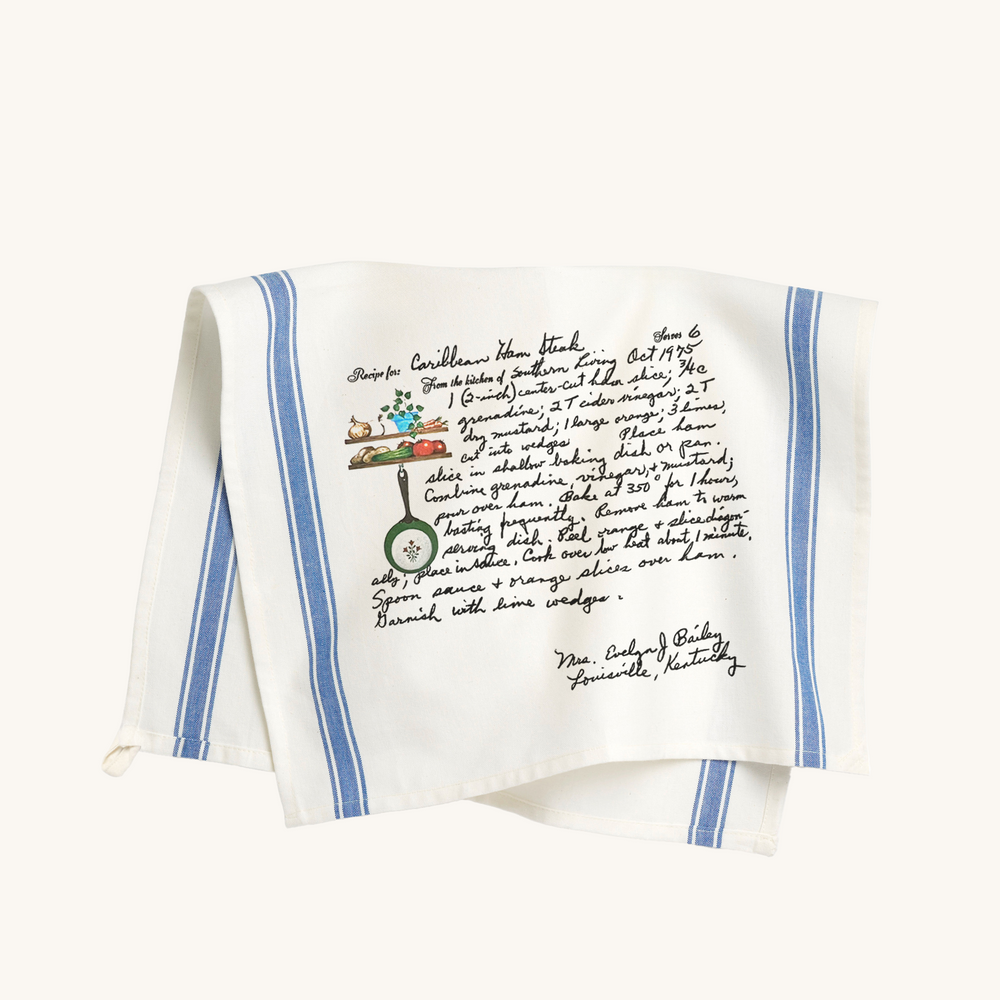 Recipe for: Caribbean Ham Steak Serves 6
From the kitchen of Southern Living Oct 1975
1 (2-inch) center-cut ham slice; 3/4 c
grenadine; 2 T cider vinegar; 2 T
dry mustard; 1 large orange; 3 limes,
cut into wedges Place ham
slice in shallow baking dish or pan.
Combine grenadine, vinegar, + mustard;
pour over ham. Bake at 350° for 1 hours,
basting frequently. Remove ham to warm
serving dish. Peel orange + slice diagon-
ally; place in sauce. Cook over low heat about 1 minute.
Spoon sauce + orange slices over ham.
Garnish with lime wedges.
Mrs. Evelyn J Bailey
Louisville, Kentucky